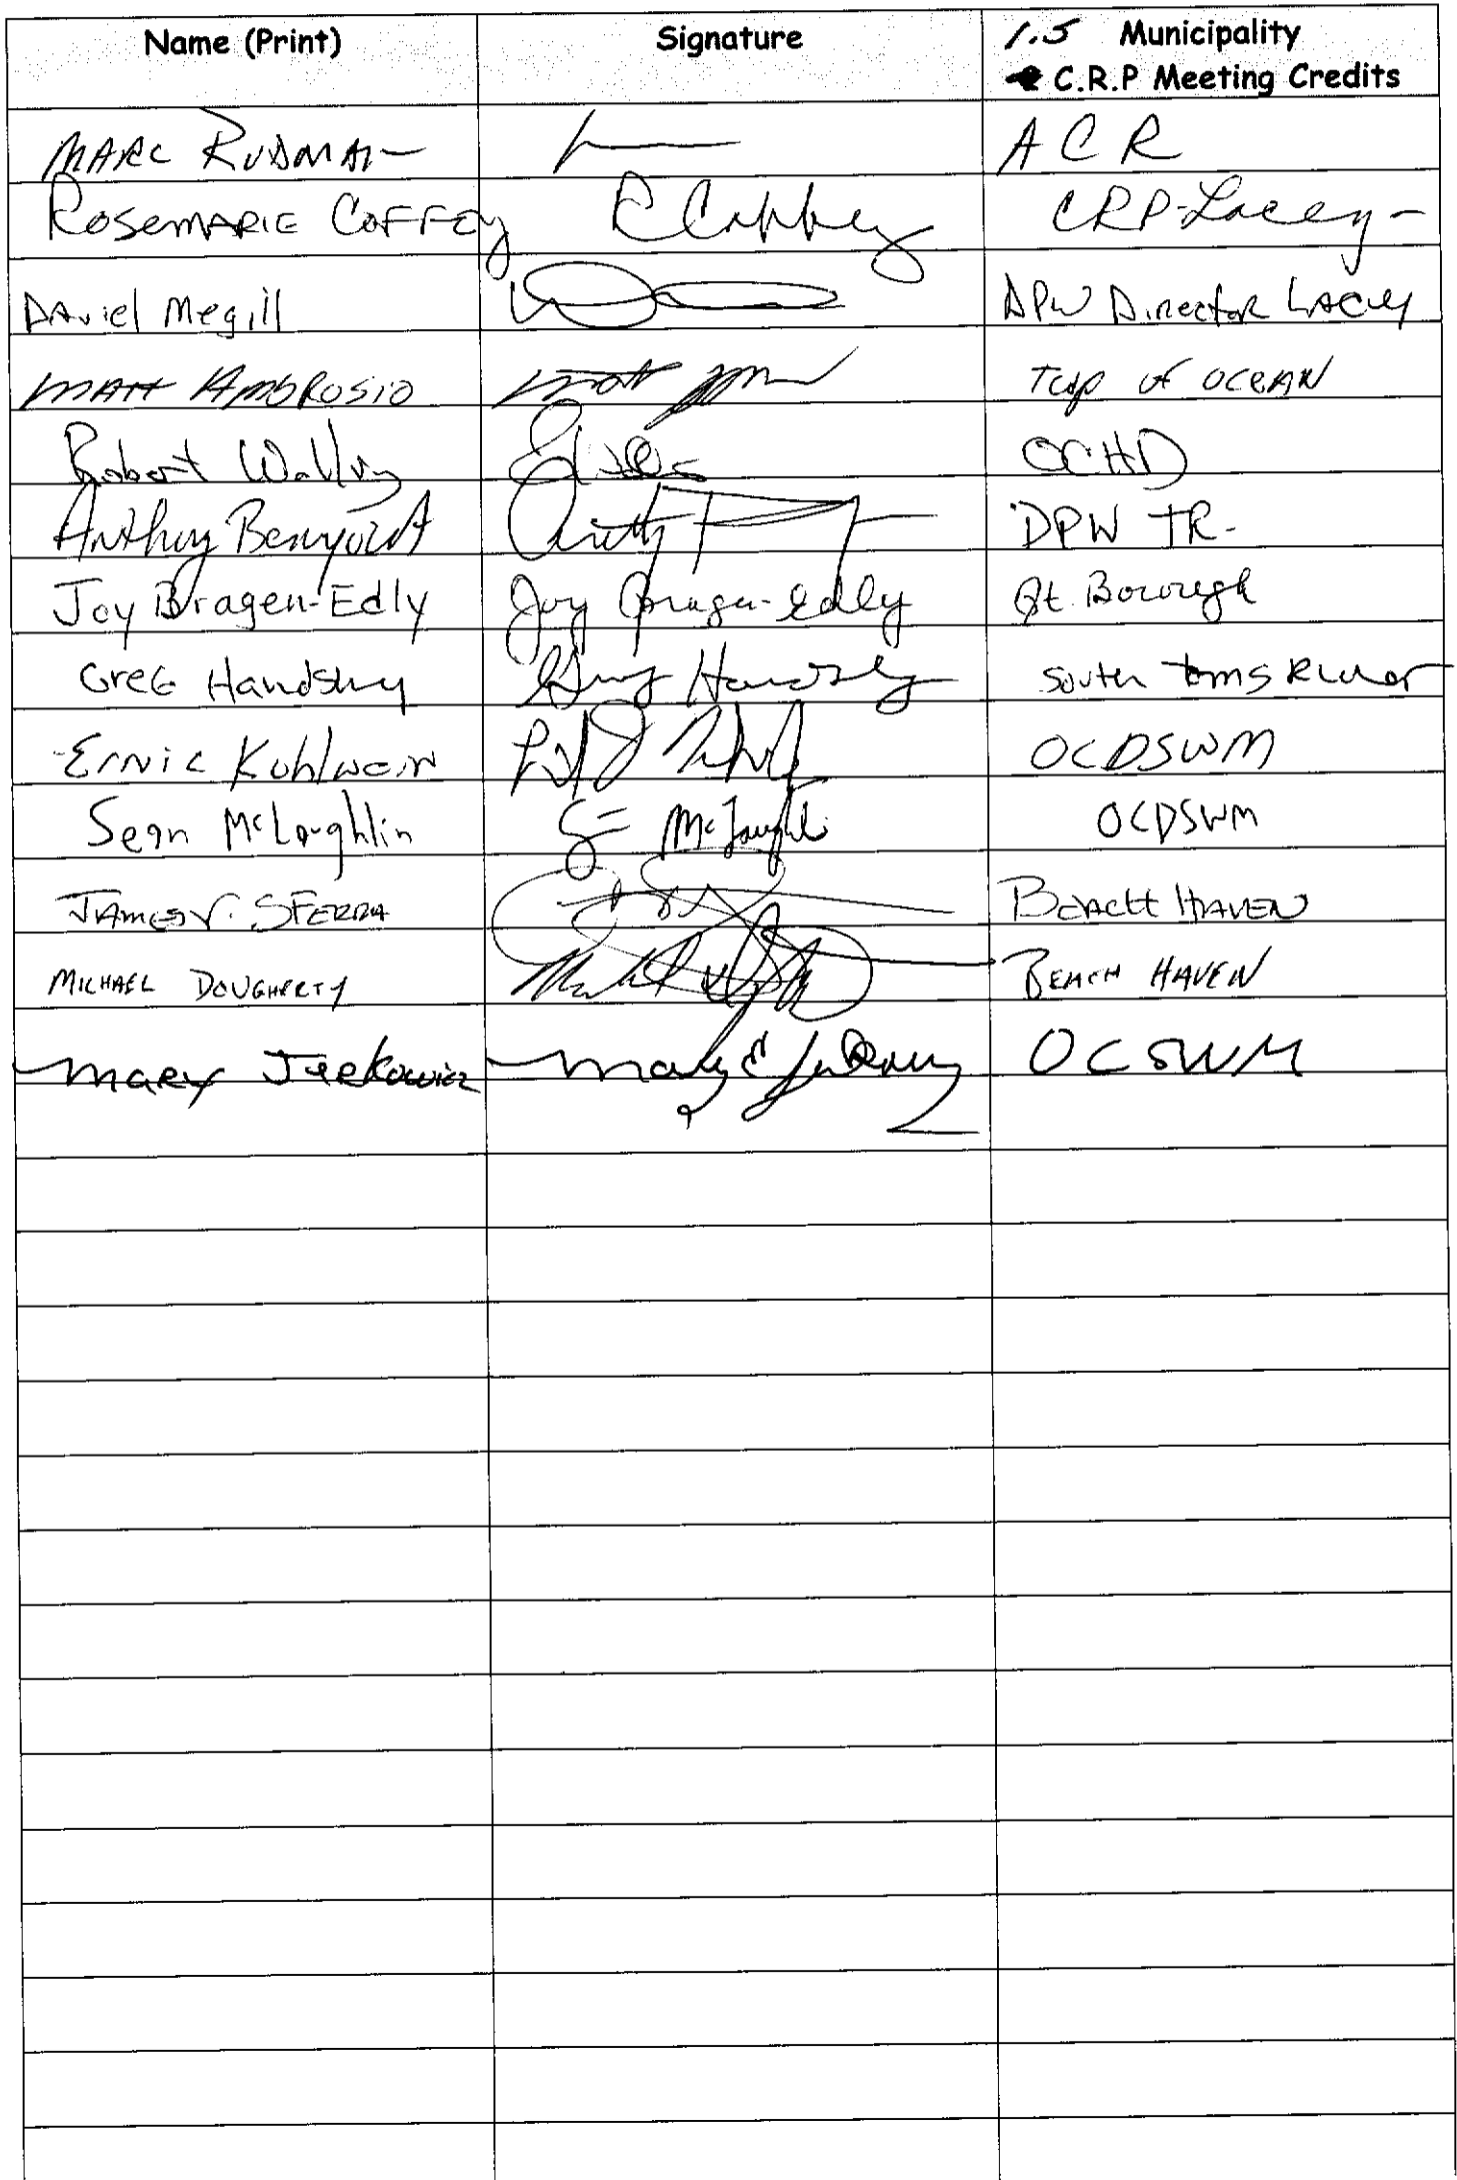 Name (Print) Signature 1.5 Municipality
C.R.P Meeting Credits
MARC RUDMAN A C R
ROSEMARIE COFFEY R Coffey CRP-Lacey-
DAniel Megill DPW Director LACEY
MATT AMBROSIO Matt Twp of OCEAN
Robert OCHD
Anthony DPW TR-
Joy Bragen-Edly Joy Bragen-Edly Pt. Borough
GreG Handshy Greg Handshy South toms River
Ernie Kuhlwein OCDSWM
Sean McLaughlin McLaughlin OCDSWM
JAMES V. SFERRA BEACH HAVEN
MICHAEL DOUGHERTY BEACH HAVEN
MARY Jerkowicz Mary E OCSWM